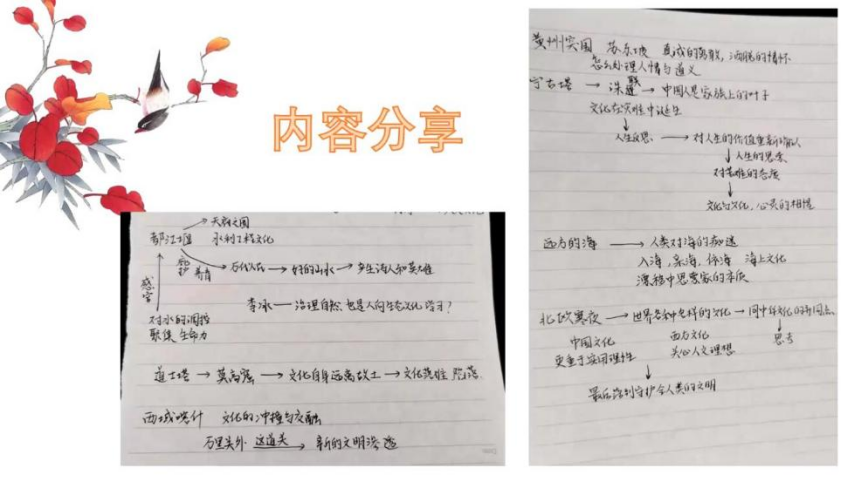 内容分享
天府之国
都江堰 水利工程文化
养育 万代人民 → 好的山水 → 多生诗人和英雄
感官
李冰 — 治理自然,也是人向生态文化学习?
对水的调控
聚集生命力
道士塔 → 莫高窟 → 文化自身远离故土 → 文化
西域喀什 文化的冲撞与交融
万里关外 这道关 → 新的文明渗透
黄州突围 苏东坡 真诚的勇敢,洒脱的情怀
怎么处理人情与道义
宁古塔 → 诛 → 中国人是家族上的叶子
文化在灾难中诞生
人生反思 → 对人生的价值重新确认
人生的思索
对苦难的态度
文化与文化,心灵的相慰
西方的海 → 人类对海的
入海,亲海,
海上文化
漂移中思索家的本质
北欧寒夜 → 世界各种色样的文化 → 同中华文化的异同点
中国文化 西方文化 思考
更重于实用理性 关心人文理想
最后守护全人类的文明